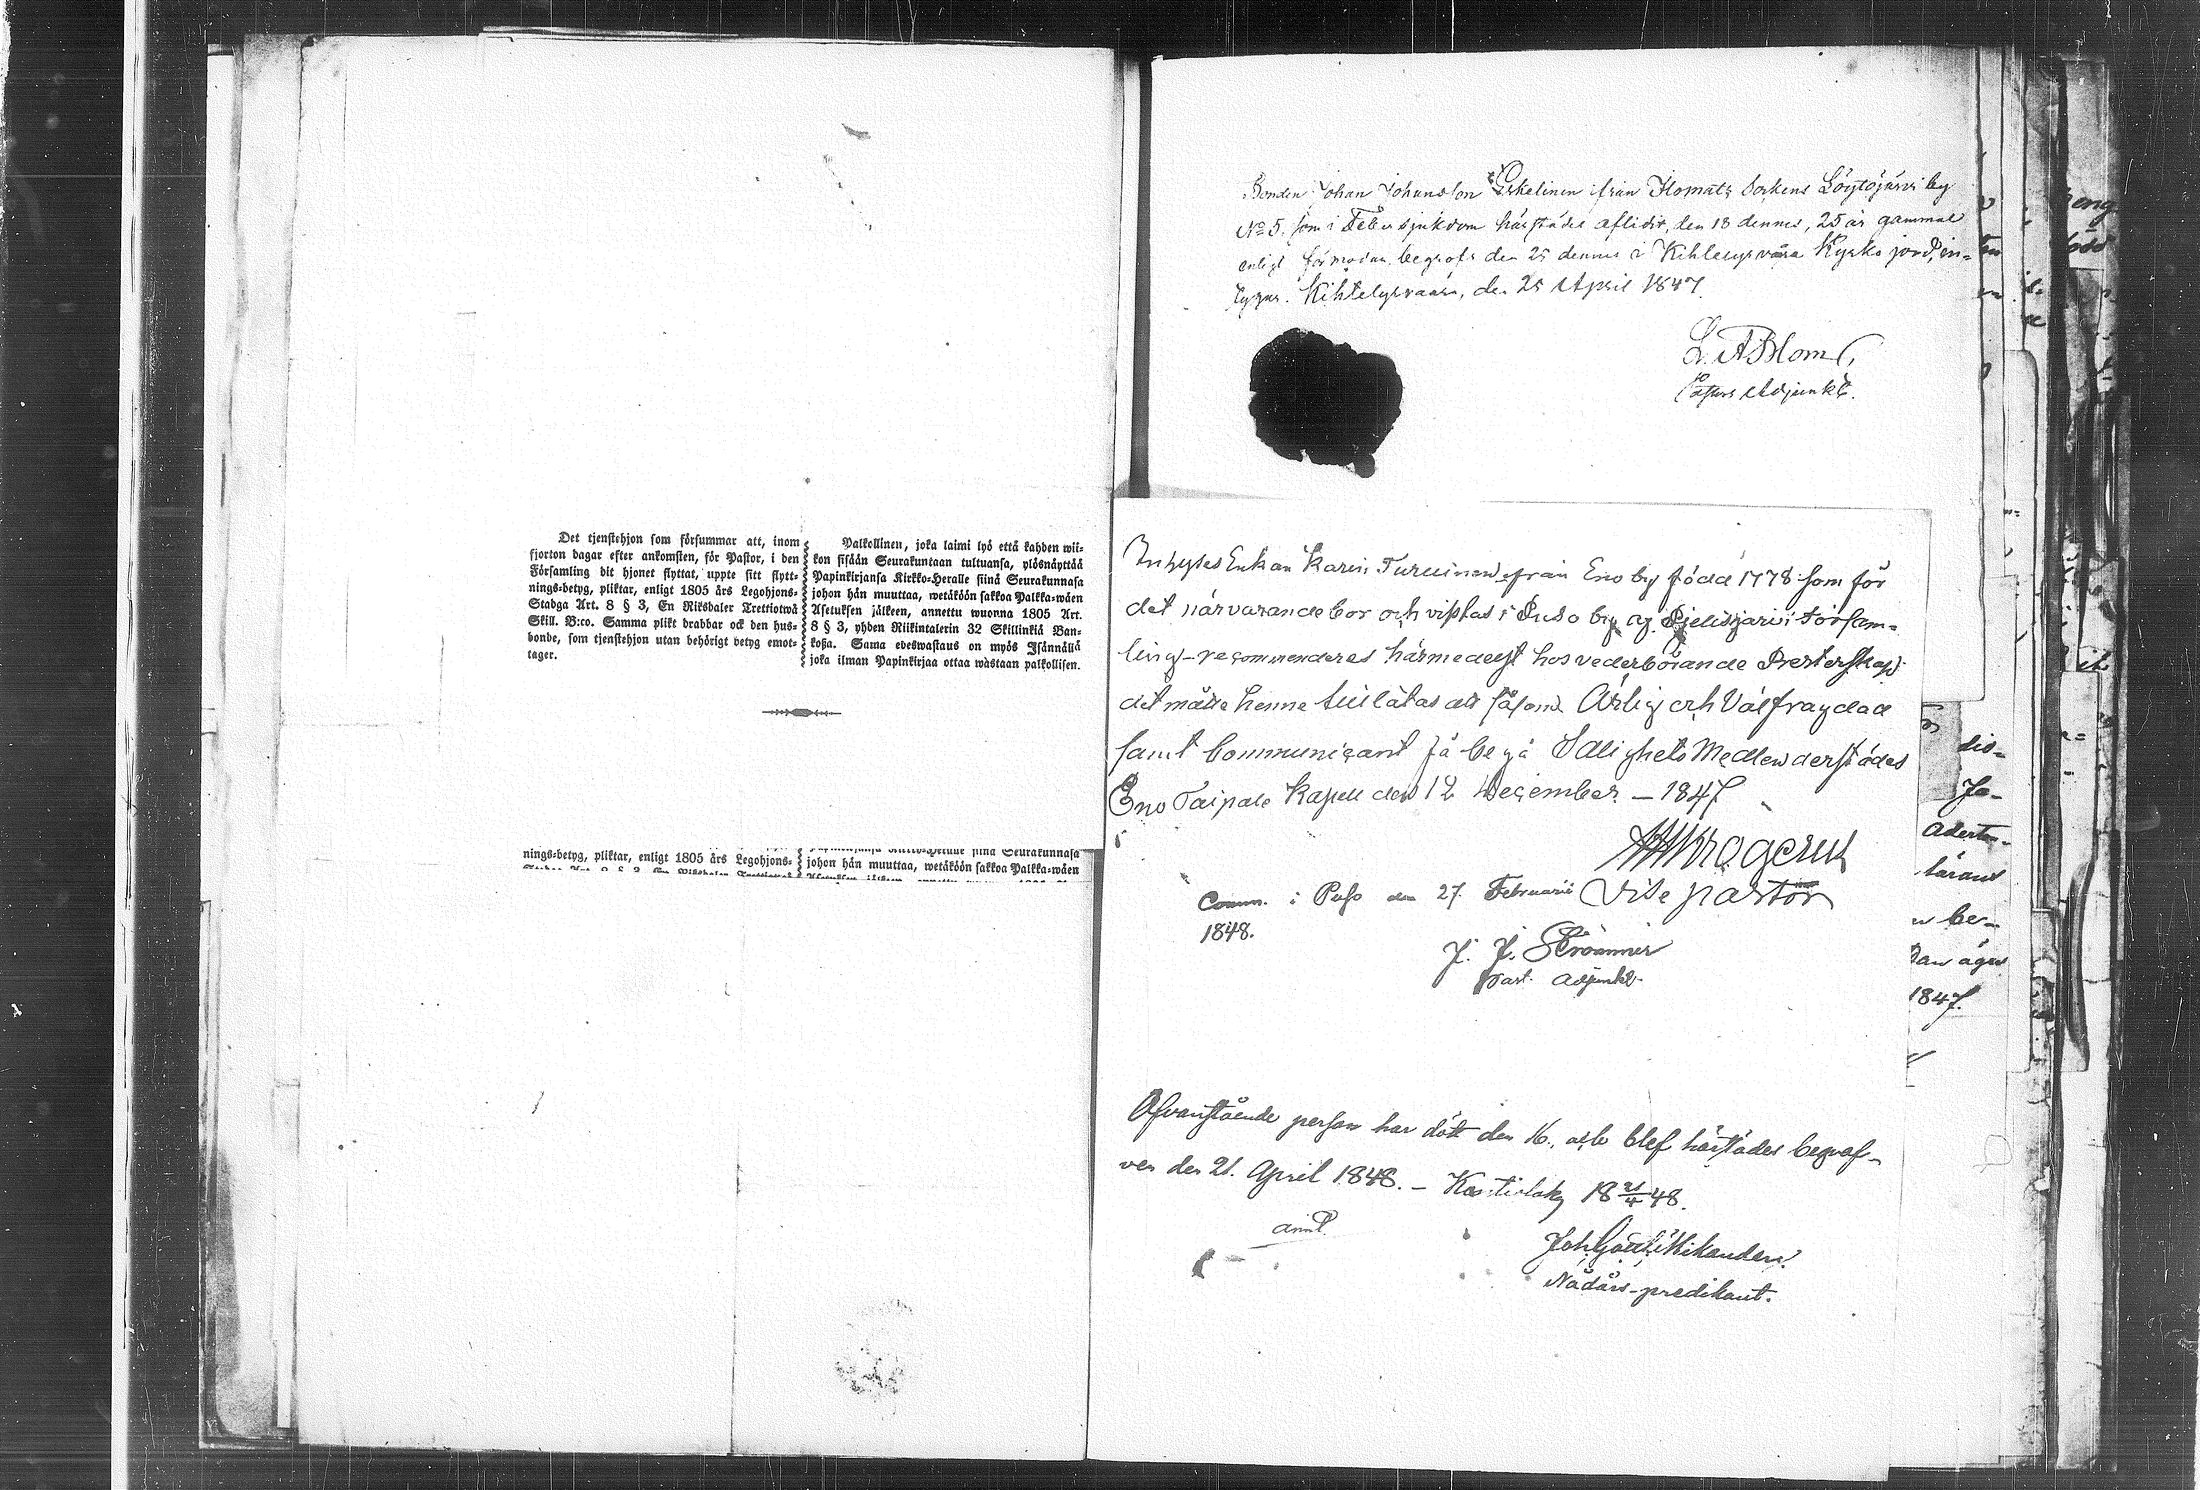 Det tjenstehjon som försummar att, inom
fjorton dagar efter ankomsten, för Pastor, i den
Församling dit hjonet flyttat, uppte sitt flytt-
nings-betyg, pliktar, enligt 1805 års Legohjons-
Stadga Art. 8 § 3, En Riksdaler Trettiotwå
Skill. B:co. Samma plikt drabbar ock den hus-
bonde, som tjenstehjon utan behörigt betyg emot-
tager.
Palkollinen, joka laimi lyö että kahden wii-
kon sisään Seurakuntaan tultuansa, ylösnäyttää
Papinkirjansa Kirkko-Heralle siinä Seurakunnasa
johon hän muuttaa, wetäköön sakkoa Palkka-wäen
Asetuksen jälkeen, annettu wuonna 1805 Art.
8 § 3, yhden Riikintalerin 32 Skillinkiä Ban-
koßa. Sama edeswastaus on myös Isännällä
joka ilman Papinkirjaa ottaa wastaan palkollisen.
nings-betyg, pliktar, enligt 1805 års Legohjons-
johon hän muuttaa, wetäköön sakkoa Palkka-wäen
Bonden Johan Johansson Eskelinen ifrån Ilomants Sockens Löytöjärvi by
No 5. som i Feber sjukdom härstädes aflidit, den 18 dennes, 25 år gammal
enligt förmodan, begrofs den 25 dennes i Kihtelysvaara Kyrko jord, in-
tygar. Kihtelysvaara, den 25 April 1847.
L. A Blom
Pastors Adjunkt.
Inhyses Enkan Karin Turuinen ifrån Eno by född 1778 som för
det närvarande bor och vistas i Puso by af Pjelisjärvi Försam-
ling - recommenderas härmedelst hos vederbörande Presterskap
det måtte henne tillåtas att såsom Ärlig och Välfräydad
samt Communicant få begå Salighets Medlen derstädes
Eno Taipale Kapell den 12 December - 1847
Krogerus
Vise pastor
Comm. i Puso den 27. Februarii
1848.
J. J. Strömmer
Past. Adjunkt.
Ofvanstående person har dött den 16. och blef härstädes begraf-
ven den 21. April 1848. - Kontiolaks 18 21/4 48.
Joh. Gotth. Mikander.
Nådårs-predikant.
1847.